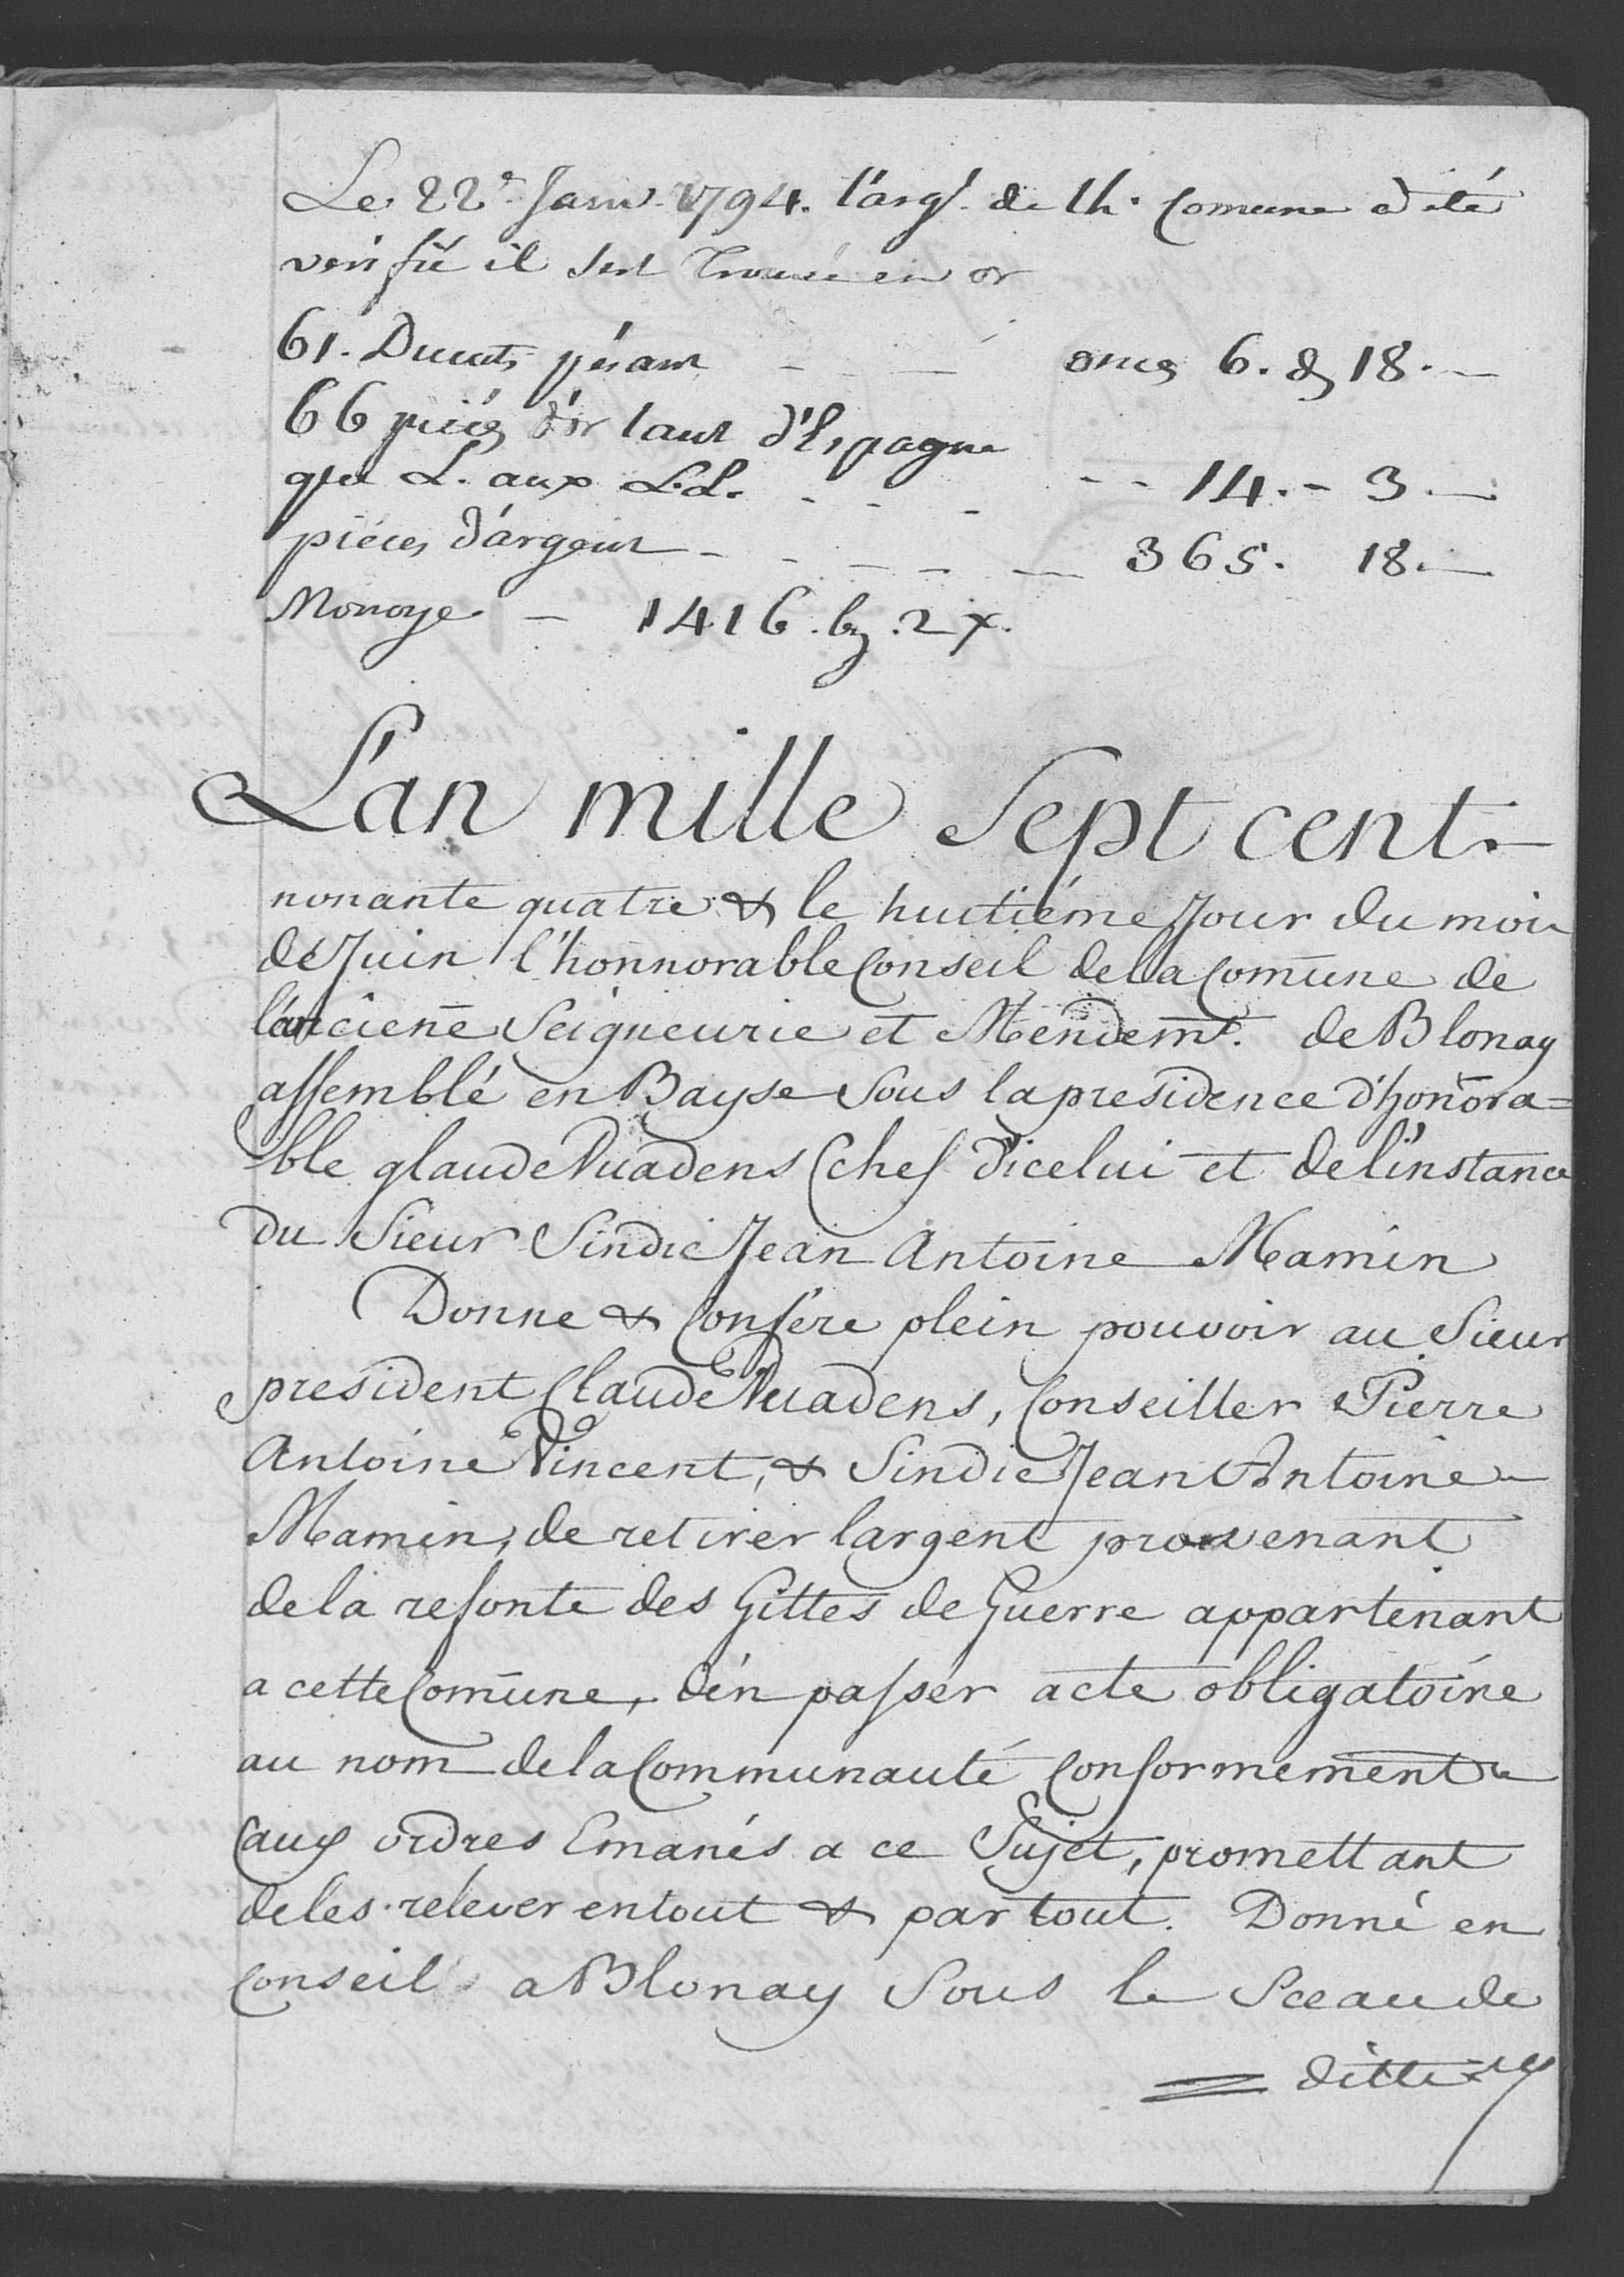 Le 22e Janv. 1794. l'argt. de lh. Comune a été
verifié il sest trouvé en or
61. Ducats pésant - - - onces 6. d 18. -
66 piéces d'or tant d'Espagne
que L. aux LL. - - - - - 14. - 3. -
piéces d'argent - - - - - 365. 18. -
Monoye - 1416. bz. 2 x.
L'an mille Sept cent
nonante quatre & le huitiéme Jour du mois
de Juin l'honnorable Conseil de la Comune de
l'anciene Seigneurie et Mendemt. de Blonay
assemblé en Bayse Sous la presidence d'honora=
ble glaude Vuadens Chef d'icelui et de l'instance
du Sieur Sindic Jean Antoine Mamin
Donne & Confére plein pouvoir au Sieur
president Claude Vuadens, Conseiller Pierre
Antoine Vincent, & Sindic Jean Antoine
Mamin, de retirer largent provenant
de la refonte des Gittes de Guerre appartenant
a cette Comune, d'én passer acte obligatoire
au nom de la Communauté Conformement
aux ordres Emanés a ce Sujet, promettant
de les relever en tout & par tout. Donné en
Conseil a Blonay Sous le Sceau de
= ditte